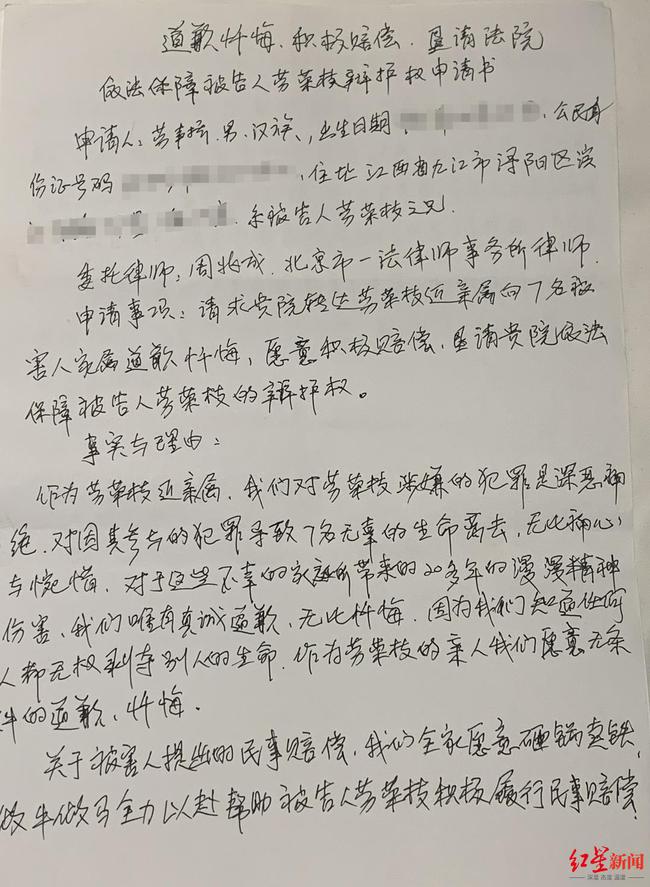 道歉忏悔、积极赔偿、恳请法院
依法保障被告人劳荣枝辩护权申请书
申请人：劳声桥，男，汉族，出生日期，公民身
份证号码，住址江西省九江市浔阳区滨
，系被告人劳荣枝之兄。
委托律师：周兆成，北京市一法律师事务所律师。
申请事项：请求贵院转达劳荣枝近亲属向7名被
害人家属道歉忏悔，愿意积极赔偿，恳请贵院依法
保障被告人劳荣枝的辩护权。
事实与理由：
作为劳荣枝近亲属，我们对劳荣枝涉嫌的犯罪是深恶痛
绝，对因其参与的犯罪导致7名无辜的生命离去，无比痛心
与惋惜，对于这些不幸的家庭所带来的20多年的漫漫精神
伤害，我们唯有真诚道歉，无比忏悔，因为我们知道任何
人都无权剥夺别人的生命，作为劳荣枝的亲人我们愿意无条
件的道歉、忏悔。
关于被害人提出的民事赔偿，我们全家愿意砸锅卖铁，
做牛做马全力以赴帮助被告人劳荣枝积极履行民事赔偿，
红星新闻
深度 态度 温度